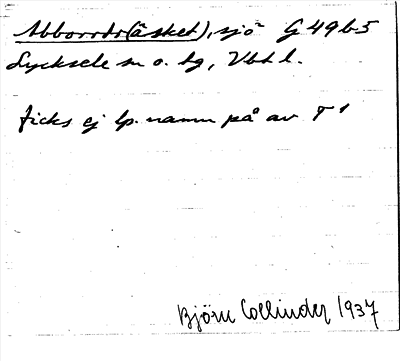 Abborrtr(äsket), sjö G 49 b5
Lycksele sn o. tg, Vbtl.
ficks ej lp. namn på av T 1
Björn Collinder 1937